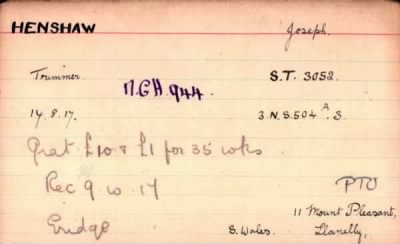 HENSHAW Joseph.
Trimmer. S.T. 3052.
M.GH.944.
14.8.17. 3.N.S.504 A.S.
Grat £10 + £1 for 35 wks
Rec 9 w 17 PTO
Eridge 11 Mount Pleasant,
S. Wales. Llanelly,